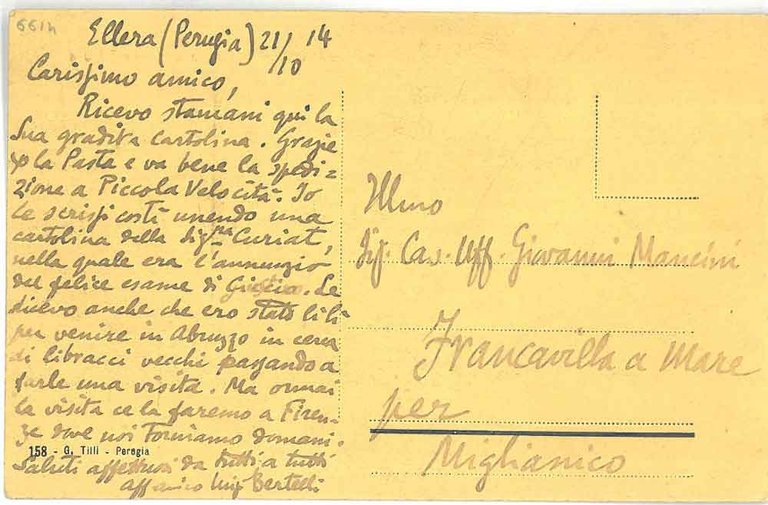 661h
Ellera (Perugia) 21/10 14
Carissimo amico,
Ricevo stamani qui la
Sua gradita cartolina. Grazie
x la Pasta e va bene la spedi=
zione a Piccola Velocità. Io
Le scrissi costì unendo una
cartolina della Sigra Curiat,
nella quale era l'annunzio
del felice esame di. Le
dicevo anche che ero stato lì lì
per venire in Abruzzo in cerca
di libracci vecchi passando a
farle una visita. Ma ormai
la visita ce la faremo a Firen-
ze dove noi torniamo domani.
158 - G. Tilli - Perugia
Saluti affettuosi da tutti a tutti
aff amico Luigi Bertelli
Illmo
Sig. Cav. Uff. Giovanni Mancini
Francavilla a Mare
per
Miglianico